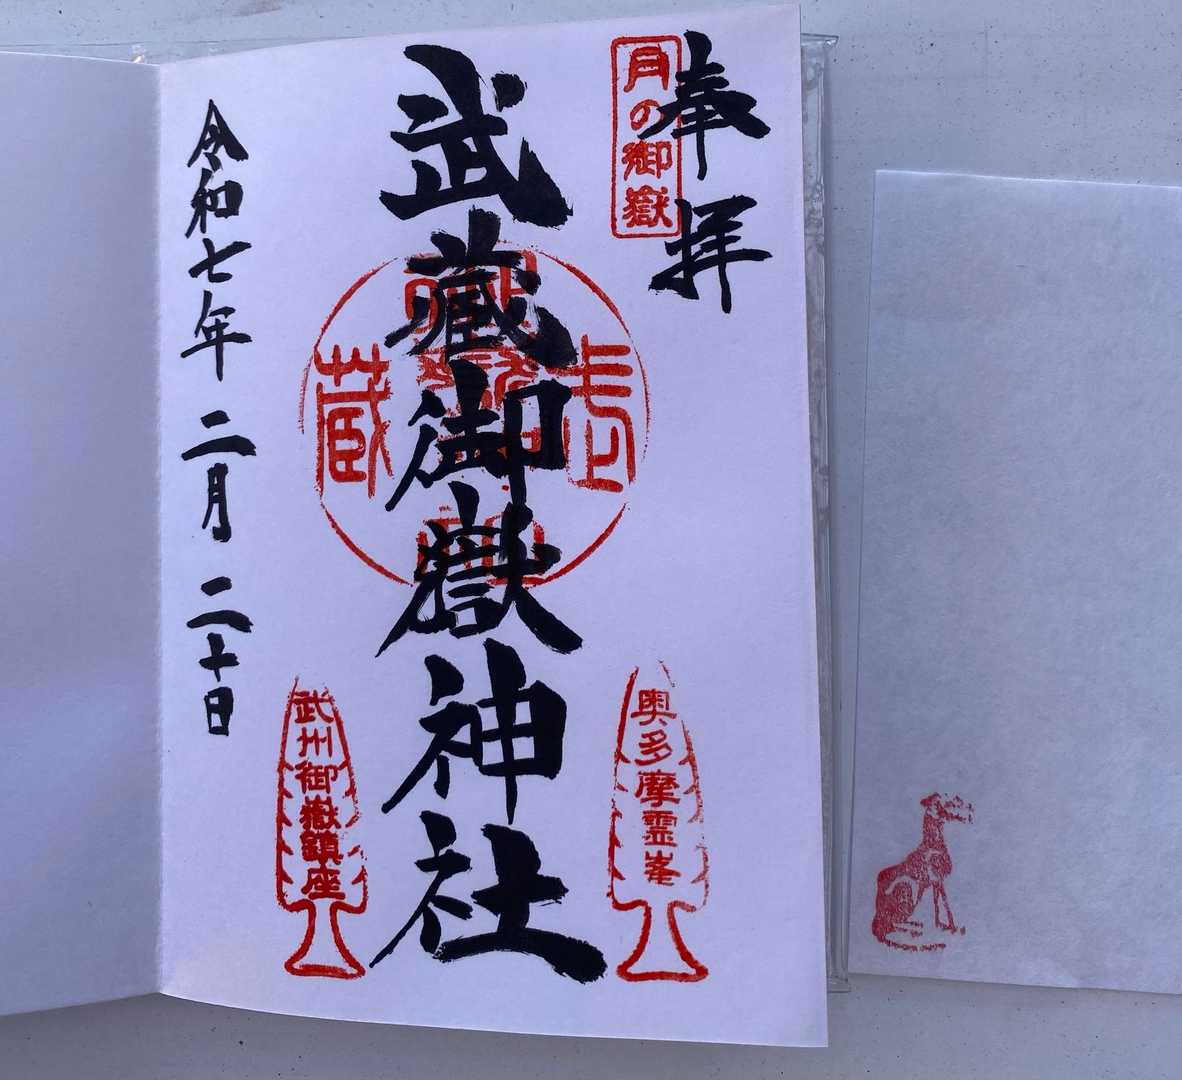 奉拝
月の御嶽
武蔵御嶽神社
武
蔵
奥多摩霊峯
武州御嶽鎮座
令和七年二月二十日